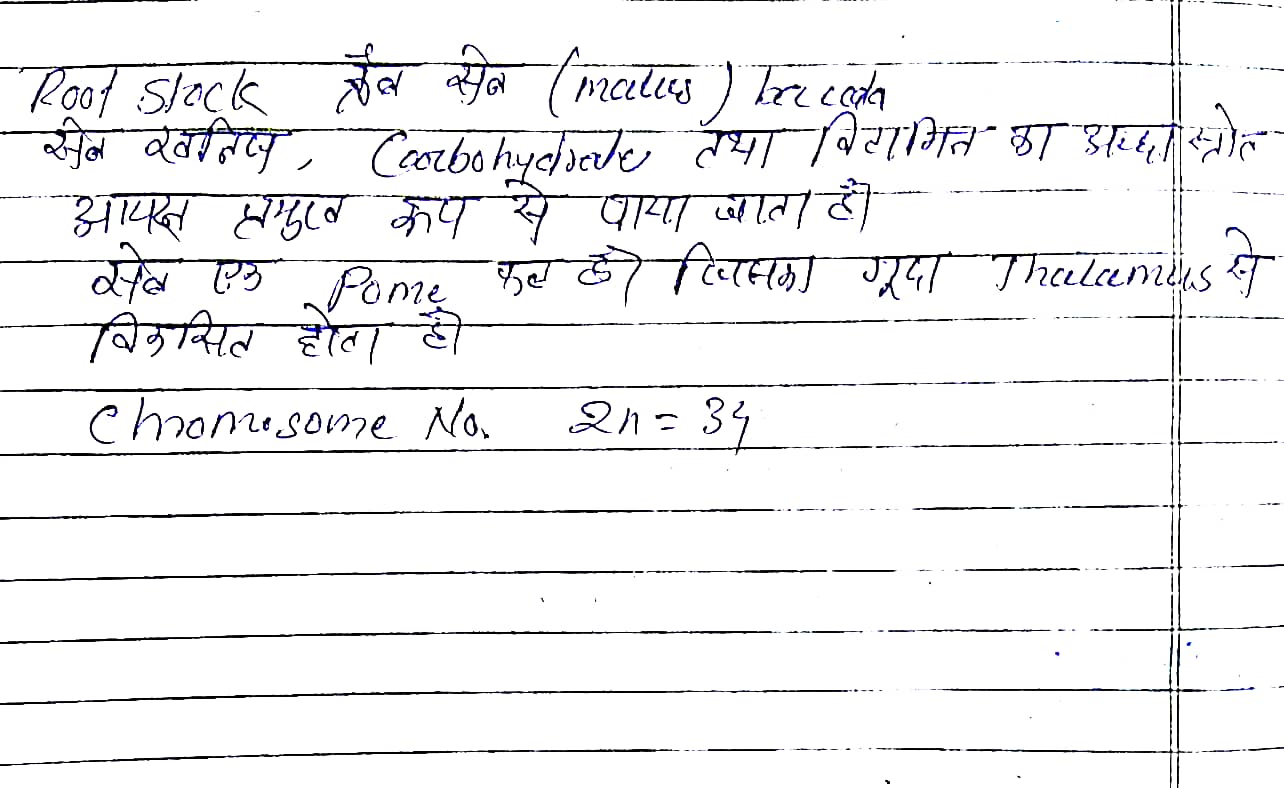 Root Stock क्रैब सेब (malus) baccata
सेब खनिज, Carbohydrate तथा विटामिन का अच्छा स्त्रोत
आयरन प्रमुख रूप से पाया जाता है।
सेब एक Pome फल है। जिसका गूदा Thalamus से
विकसित होता है।
Chromosome No. 2n = 34